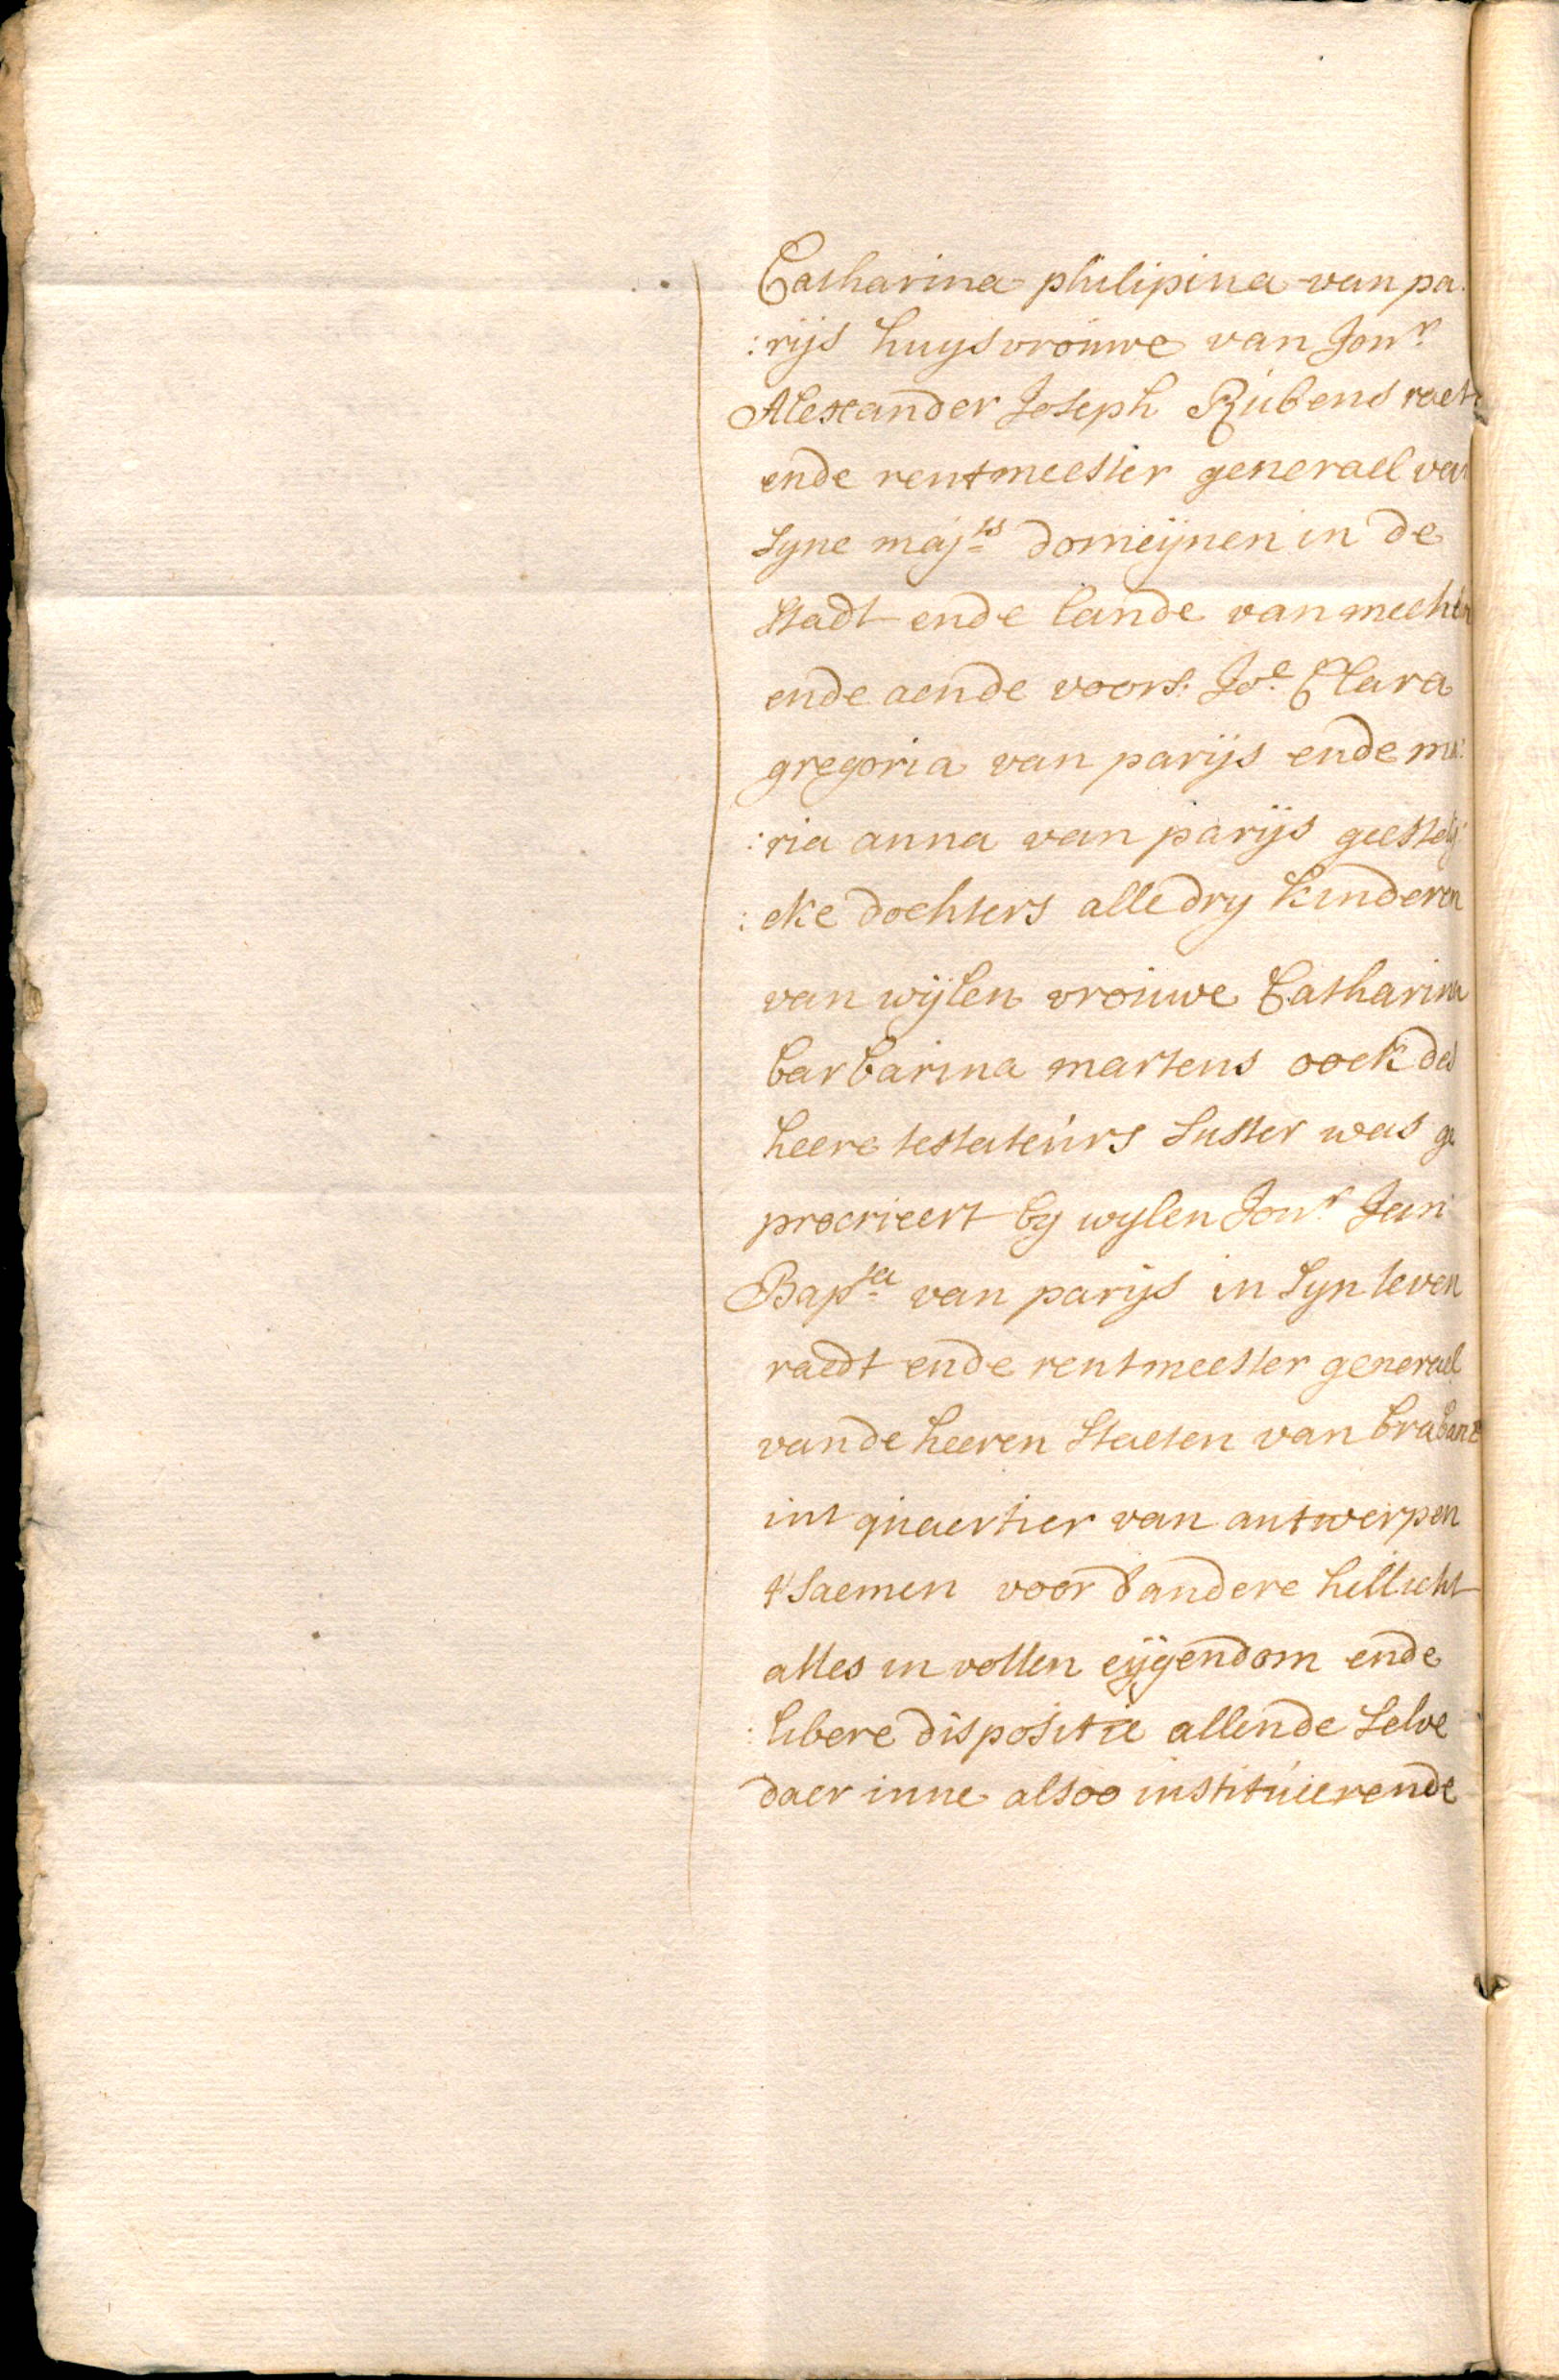 Catharina philipina van pa:
:rijs huijsvrouwe van Jonr.
Alexander Joseph Rubens raet
ende rentmeester generael van
syne majts domeijnen in de
stadt ende lande van mechlen
ende aende voors. Joe. Clara
gregoria van parijs ende ma:
:ria anna van parijs geestely
:cke dochters alle dry kinderen
van wijlen vrouwe Catharina
barbarina martens oock des
heere testateurs suster was ge
procrieert by wylen Jonr. Jan
Bapta van parijs in syn leven
raedt ende rentmeester generael
vande heeren staeten van brabant
int quaertier van antwerpen
t'saemen voor d'andere hellicht
alles in vollen eijgendom ende
libere dispositie allende selve
daer inne alsoo instituerende